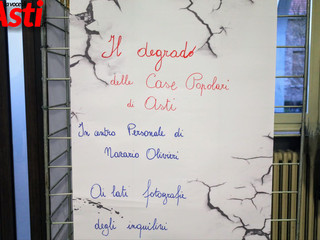 la voce di
Asti
Il degrado
delle Case Popolari
di Asti
In antro Personale di
Narario Olivieri
Ai lati fotografie
degli inquilini